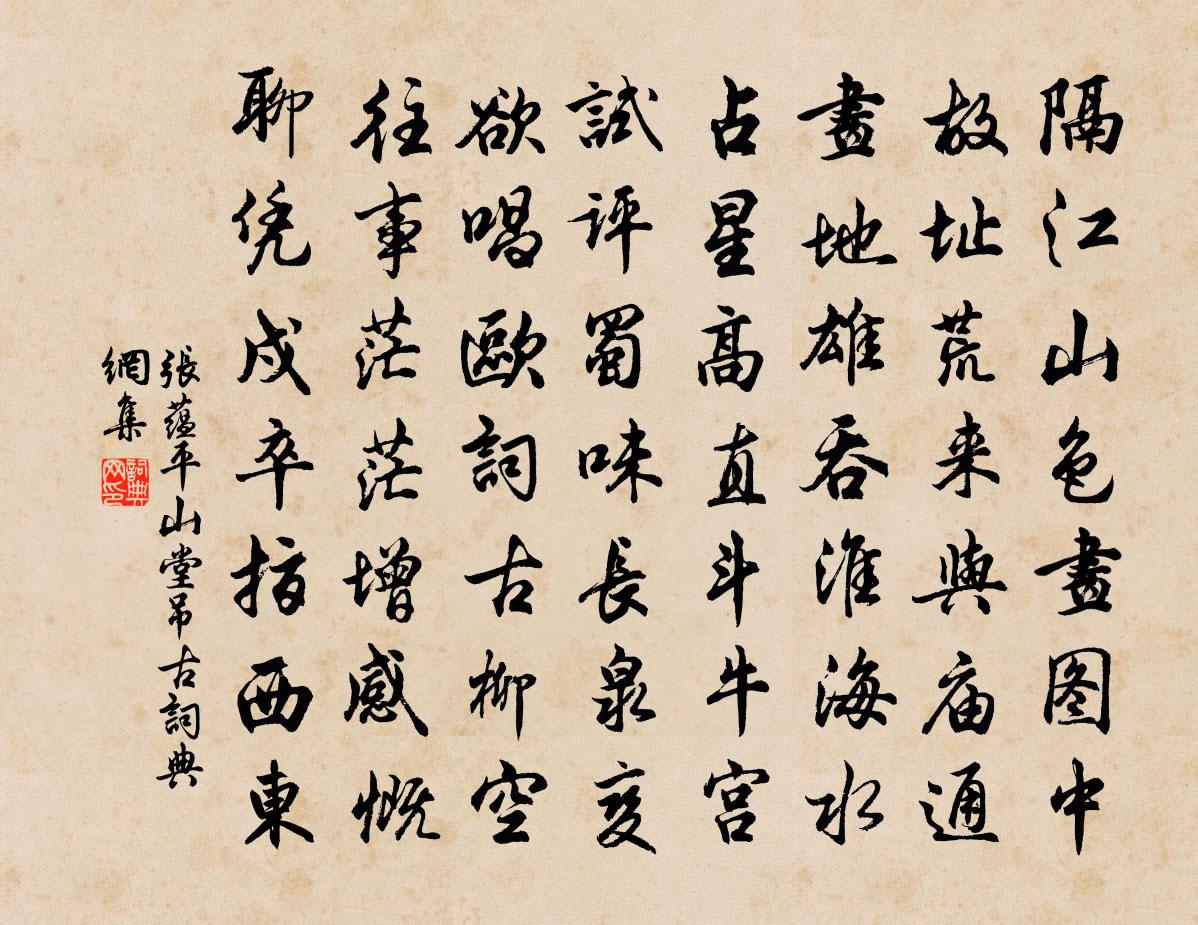 隔江山色畫图中
故址荒来與庙通
畫地雄吞淮海水
占星高直斗牛宫
試評蜀味長泉变
欲唱歐詞古柳空
往事茫茫增感慨
聊凭戍卒指西東
張蕴平山堂吊古詞典
網集
詞典网印